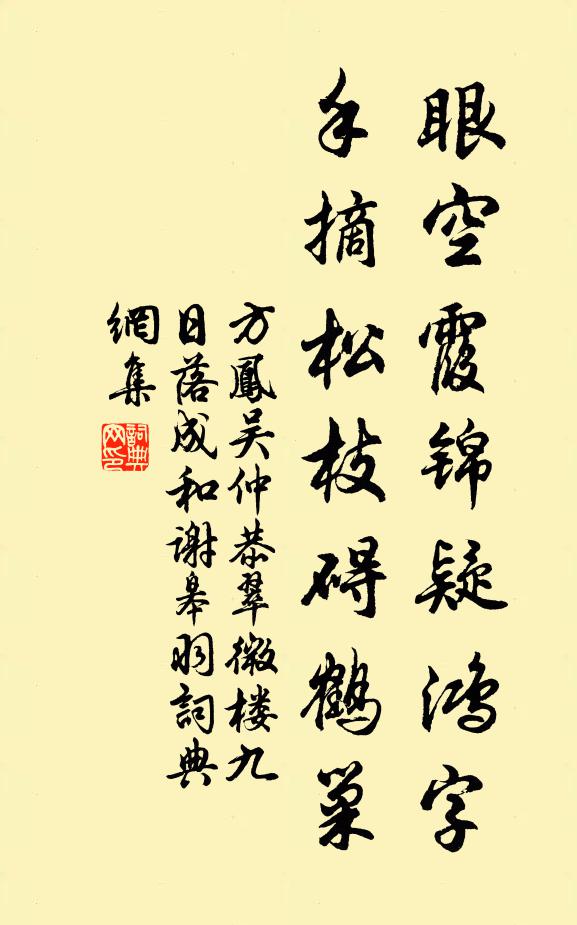 眼空霞锦疑鸿字
手摘松枝碍鹤巢
方鳳吴仲恭翠微楼九
日落成和谢皋羽詞典
網集
詞典网印